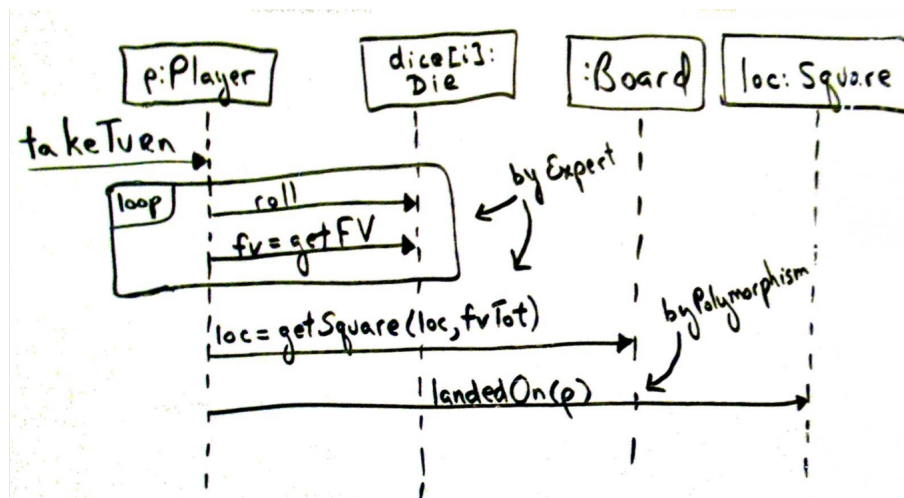 p:Player
dice[i]:
Die
:Board
loc: Square
takeTurn
loop
roll
fv=getFV
by Expert
loc=getSquare(loc, fvTot)
byPolymorphism
landedOn(p)